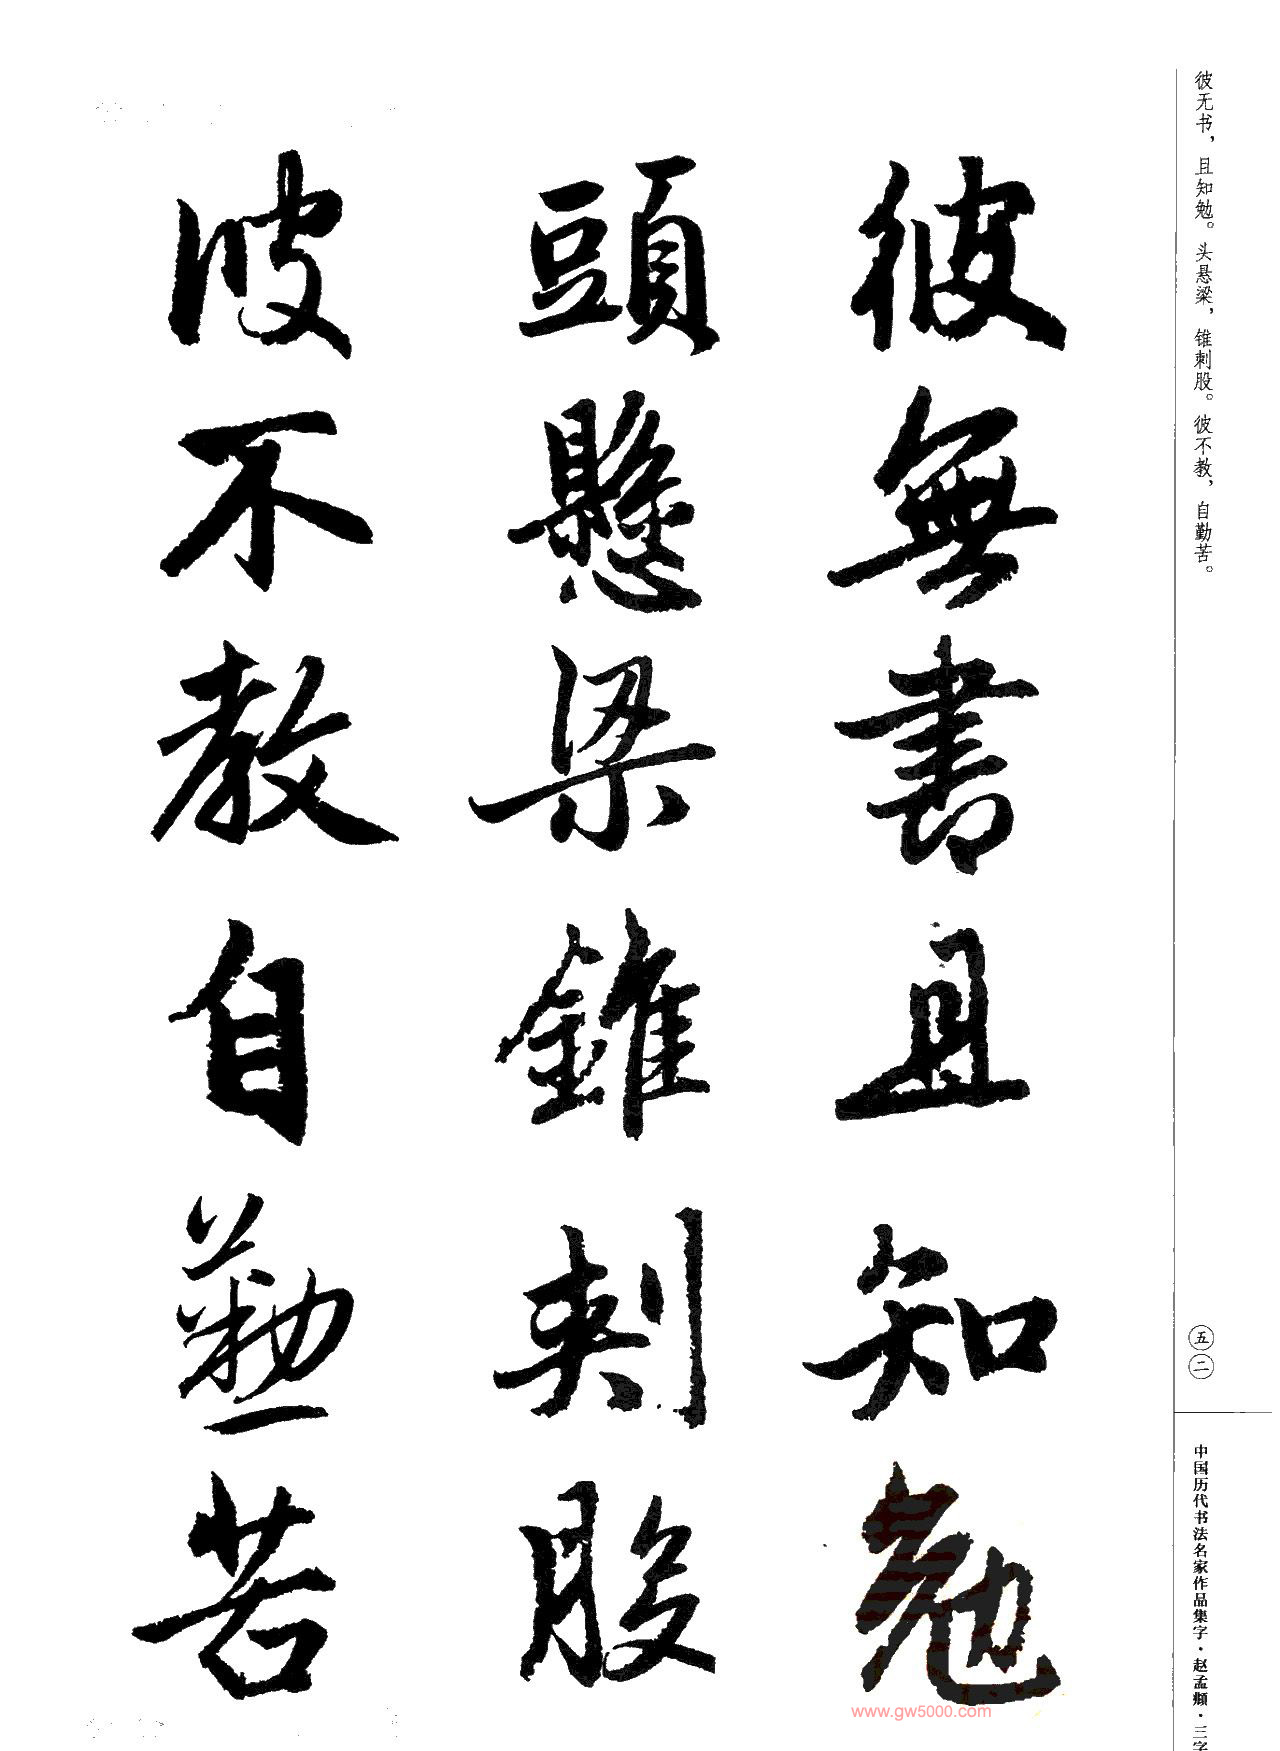 彼无书，且知勉。头悬梁，锥刺股。彼不教，自勤苦。
五二
中国历代书法名家作品集字·赵孟頫·三字
彼無書且知勉
頭懸梁錐刺股
彼不教自勤苦
www.gw5000.com